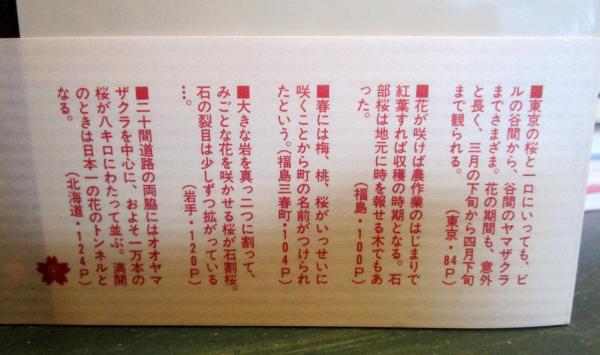 ■東京の桜と一口にいっても、ビ
ルの谷間から、谷間のヤマザクラ
までさまざま。花の期間も、意外
と長く、三月の下旬から四月下旬
まで観られる。（東京・84P）
■花が咲けば農作業のはじまりで
紅葉すれば収穫の時期となる。石
部桜は地元に時を報せる木でもあ
った。（福島・100P）
■春には梅、桃、桜がいっせいに
咲くことから町の名前がつけられ
たという。（福島三春町・104P）
■大きな岩を真っ二つに割って、
みごとな花を咲かせる桜が石割桜。
石の裂目は少しずつ拡がっている
…。（岩手・120P）
■二十間道路の両脇にはオオヤマ
ザクラを中心に、およそ一万本の
桜が八キロにわたって並ぶ。満開
のときは日本一の花のトンネルと
なる。（北海道・124P）